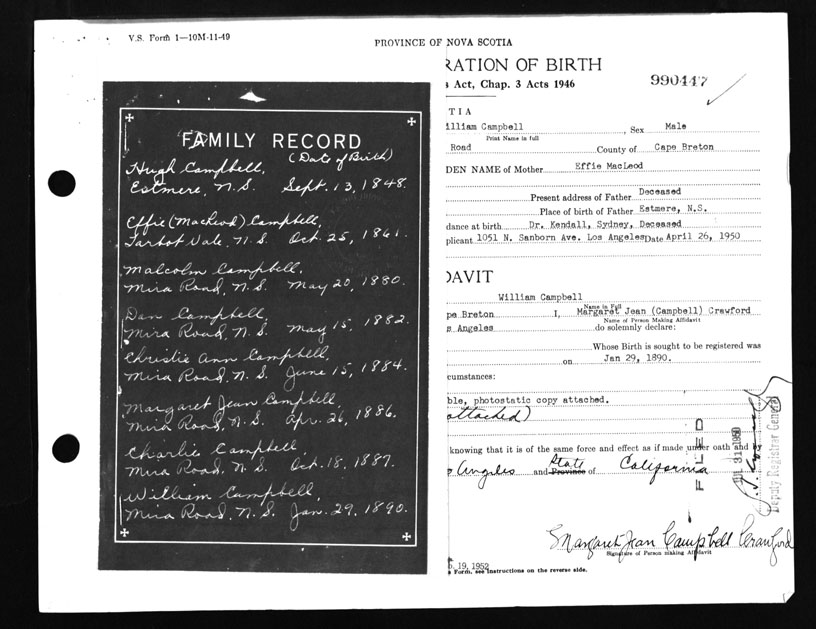 V.S. Form 1—10M-11-49
PROVINCE OF NOVA SCOTIA
FAMILY RECORD
(Date of Birth)
Hugh Campbell,
Estmere, N.S. Sept. 13, 1848.
Effie (MacLeod) Campbell,
Tarbot Vale, N.S. Oct. 25, 1861.
Malcolm Campbell,
Mira Road, N.S. May 20, 1880.
Dan Campbell,
Mira Road, N.S. May 15, 1882.
Christie Ann Campbell,
Mira Road, N.S. June 15, 1884.
Margaret Jean Campbell
Mira Road, N.S. Apr. 26, 1886.
Charlie Campbell,
Mira Road, N.S. Oct. 18, 1887.
William Campbell,
Mira Road, N.S. Jan. 29, 1890.
RATION OF BIRTH
s Act, Chap. 3 Acts 1946
990447
TIA
illiam Campbell , Sex Male
Print Name in full
Road County of Cape Breton
DEN NAME of Mother Effie MacLeod
Present address of Father Deceased
Place of birth of Father Estmere, N.S.
dance at birth Dr. Kendall, Sydney, Deceased
plicant 1051 N. Sanborn Ave. Los Angeles Date April 26, 1950
DAVIT
William Campbell
Name in Full
pe Breton I, Margaret Jean (Campbell) Crawford
Name of Person Making Affidavit
s Angeles do solemnly declare:
Whose Birth is sought to be registered was
on Jan 29, 1890.
cumstances:
ble, photostatic copy attached.
attached)
knowing that it is of the same force and effect as if made under oath and by
Angeles and State Province of California
FILED
31 1950
Deputy Registrar General
Margaret Jean Campbell Crawford
Signature of Person making Affidavit
19, 1952
s Form, see instructions on the reverse side.